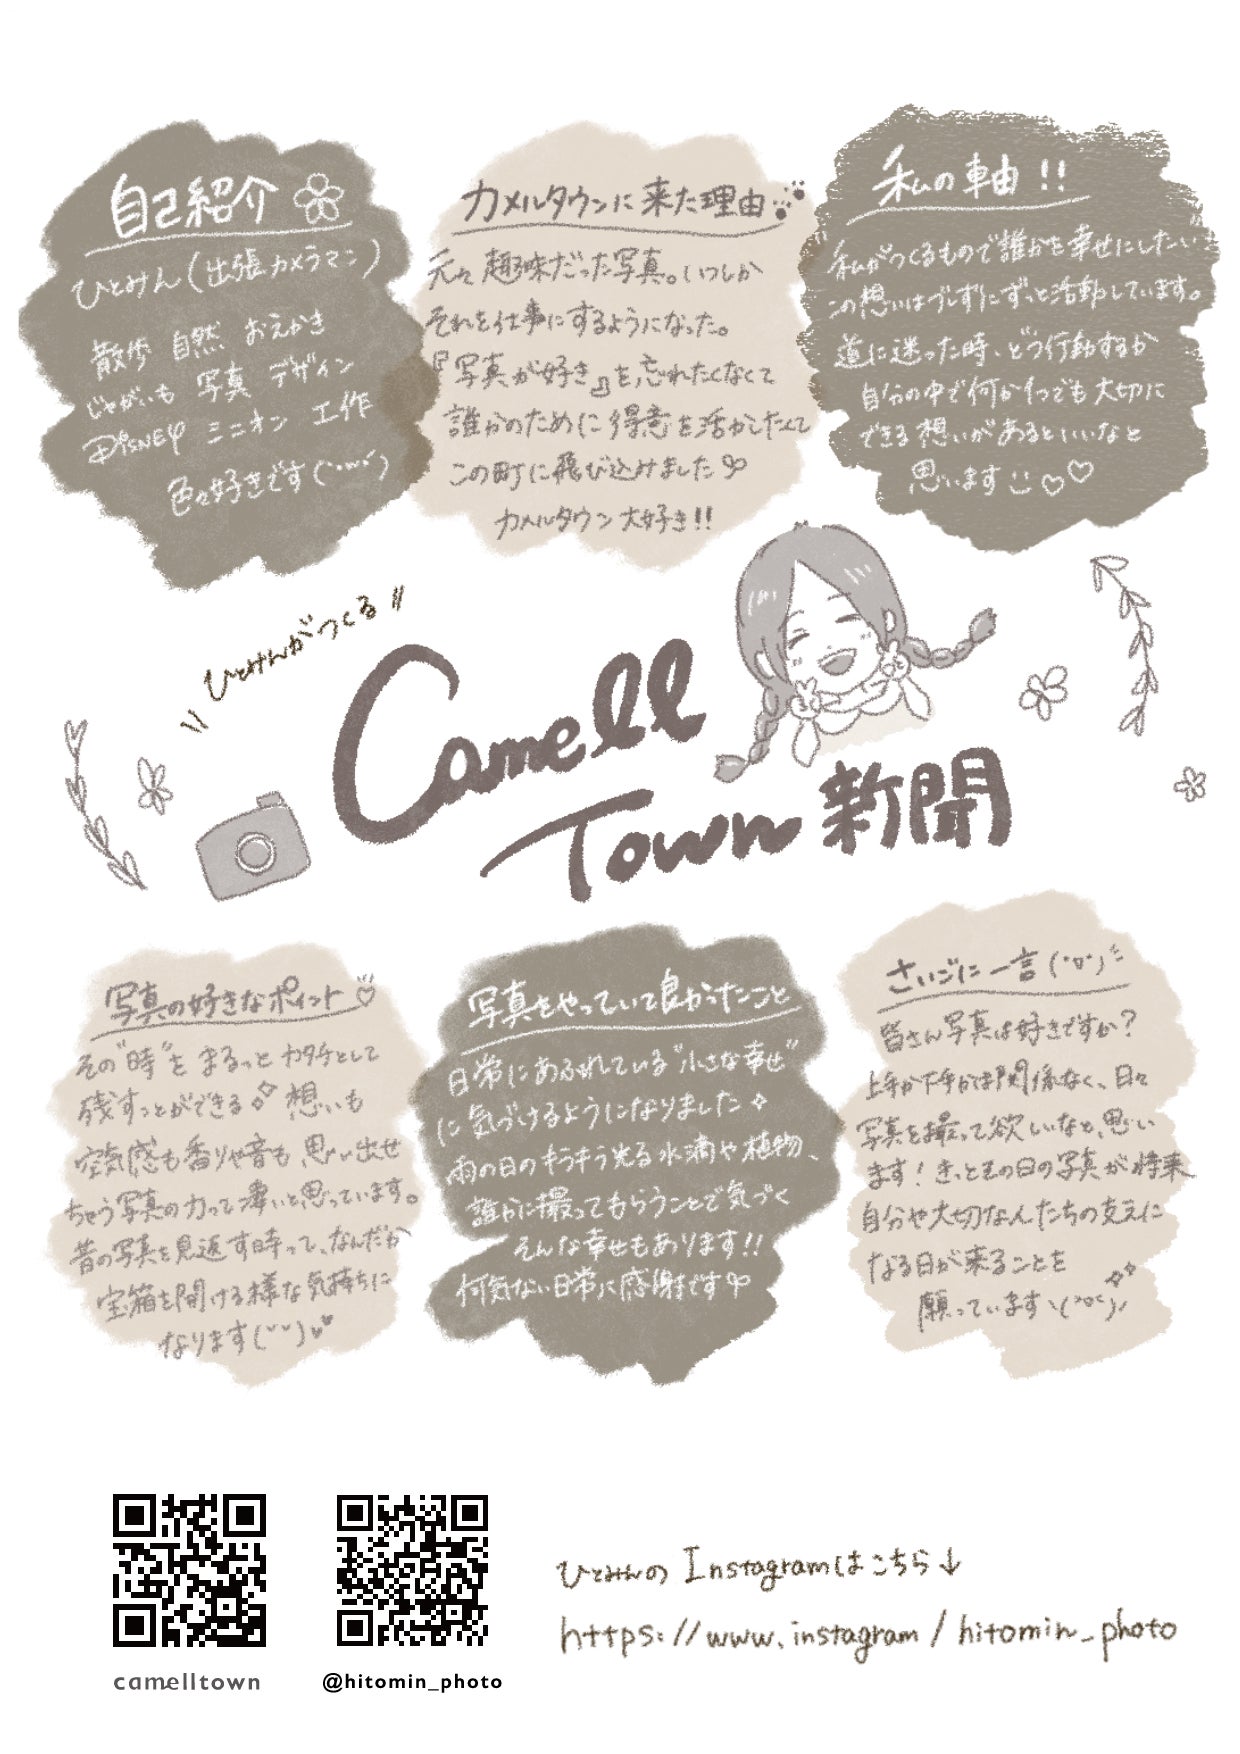 自己紹介
ひとみん(出張カメラマン)
散歩 自然 おえかき
じゃがいも 写真 デザイン
Disney ミニオン 工作
色々好きです(´･ω･`)
カメルタウンに来た理由
元々趣味だった写真。いつしか
それを仕事にするようになった。
『写真が好き』を忘れたくなくて
誰かのために得意を活かしたくて
この町に飛び込みました
カメルタウン大好き!!
私の軸!!
私がつくるもので誰かを幸せにしたい
この想いはブレずにずっと活動しています。
道に迷った時、どう行動するか
自分の中で何か1つでも大切に
できる想いがあるといいなと
思います
\\ ひとみんがつくる //
Camell
Town新聞
写真の好きなポイント
その"時"をまるっとカタチとして
残すことができる 想いも
空気感も香りや音も、思い出せ
ちゃう写真の力って凄いと思っています。
昔の写真を見返す時って、なんだか
宝箱を開ける様な気持ちに
なります(˘˘)
写真をやっていて良かったこと
日常にあふれている"小さな幸せ"
に気づけるようになりました
雨の日のキラキラ光る水滴や植物、
誰かに撮ってもらうことで気づく
そんな幸せもあります!!
何気ない日常に感謝です
さいごに一言(˙▿˙)
皆さん写真は好きですか?
上手か下手かは関係なく、日々
写真を撮って欲しいなと、思い
ます!きっとその日の写真が将来
自分や大切な人たちの支えに
なる日が来ることを
願っています
camelltown
@hitomin_photo
ひとみんのInstagramはこちら↓
https://www.instagram/hitomin_photo